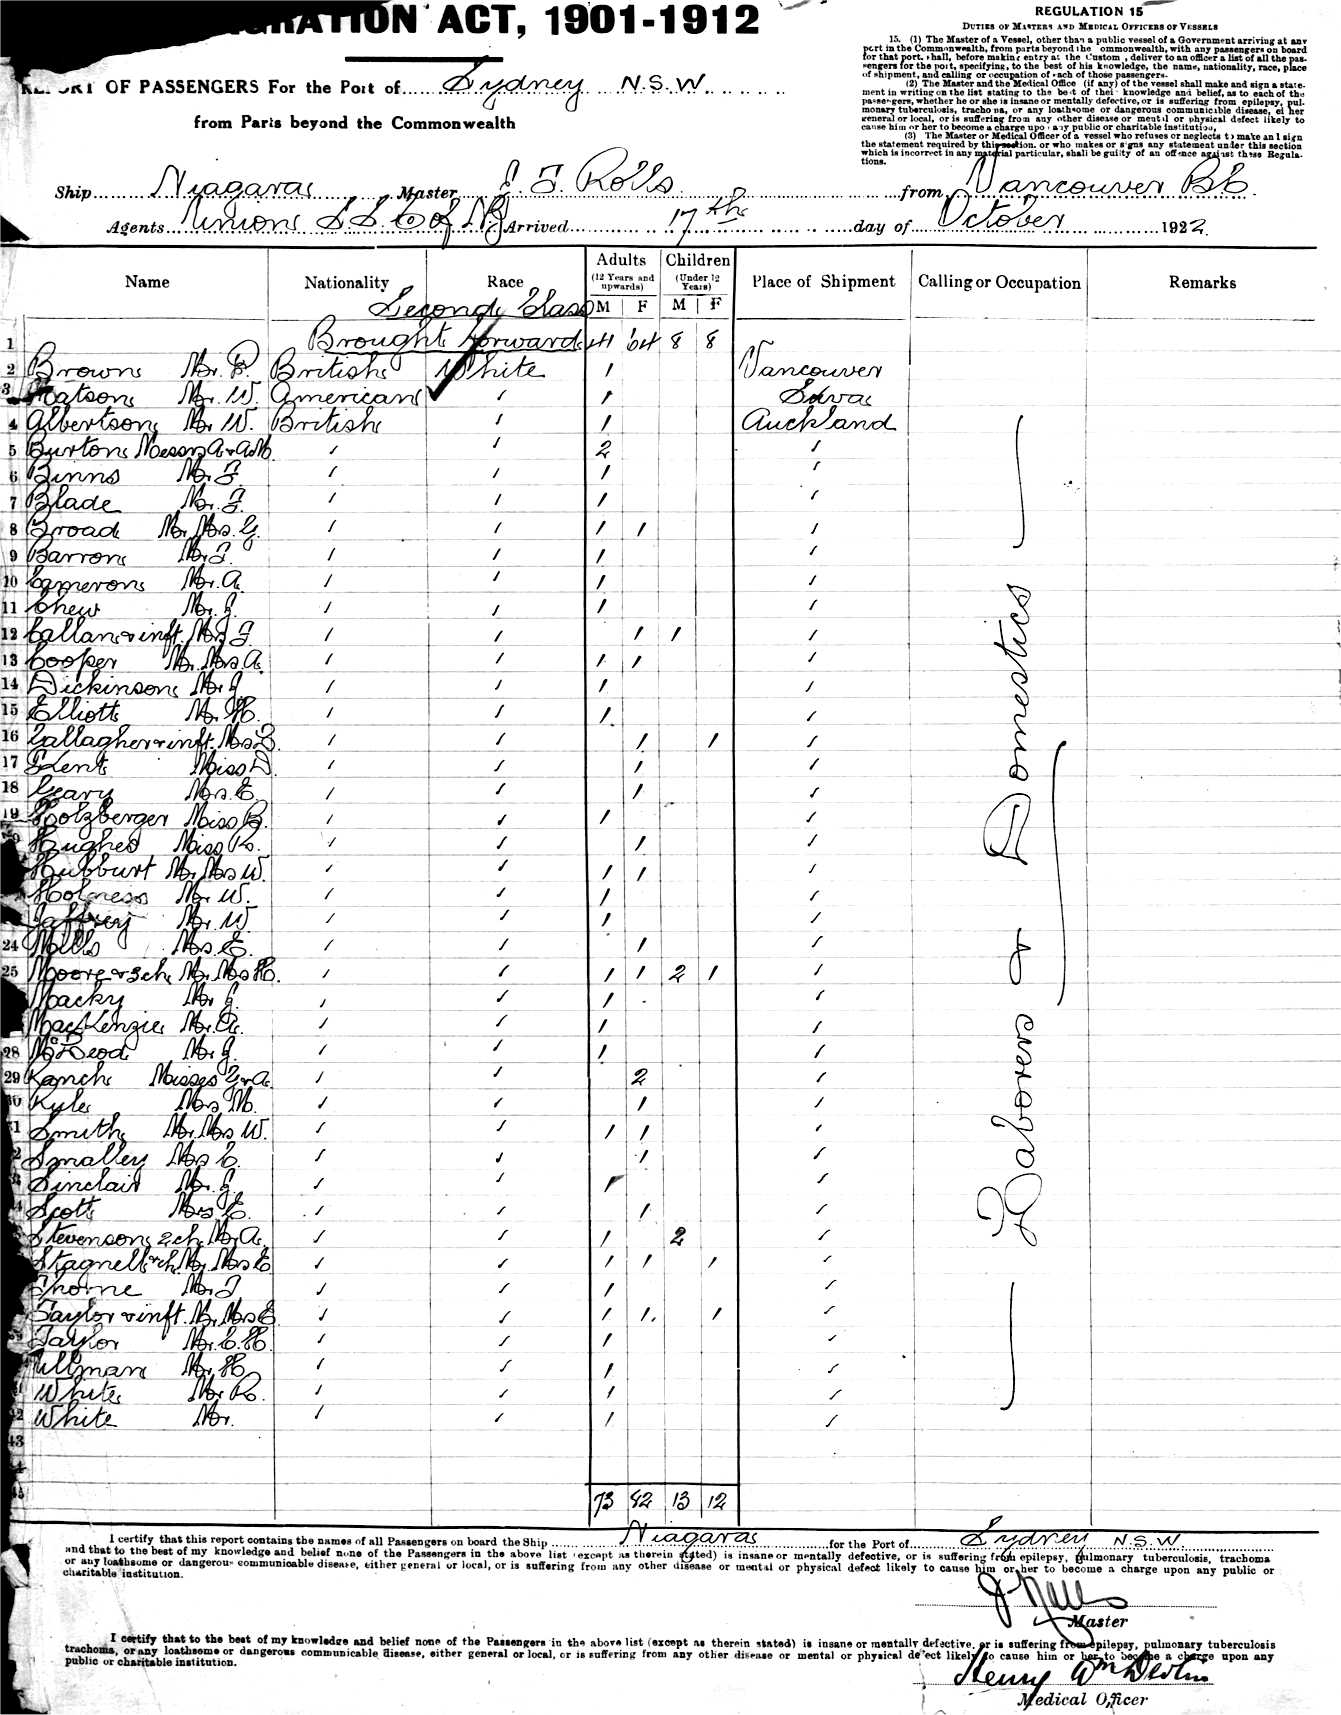 GRATION ACT, 1901-1912
REPORT OF PASSENGERS For the Port of Sydney N.S.W.
from Parts beyond the Commonwealth
REGULATION 15
DUTIES OF MASTERS AND MEDICAL OFFICERS OF VESSELS
15. (1) The Master of a Vessel, other than a public vessel of a Government arriving at any
port in the Commonwealth, from parts beyond the ommonwealth, with any passengers on board
for that port, shall, before making entry at the Custom , deliver to an officer a list of all the pas-
sengers for the port, specifying, to the best of his knowledge, the name, nationality, race, place
of shipment, and calling or occupation of each of those passengers.
(2) The Master and the Medical Office (if any) of the vessel shall make and sign a state-
ment in writing on the list stating to the best of thei knowledge and belief, as to each of the
passengers, whether he or she is insane or mentally defective, or is suffering from epilepsy, pul-
monary tuberculosis, tracho na, or any loathsome or dangerous communicable disease, ei her
general or local, or is suffering from any other disease or mental or physical defect likely to
cause him or her to become a charge upo any public or charitable institution,
(3) The Master or Medical Officer of a vessel who refuses or neglects to make and sign
the statement required by this section, or who makes or signs any statement under this section
which is incorrect in any material particular, shall be guilty of an offence against these Regula-
tions.
Ship Niagara Master J. F. Rolls from Vancouver B.C.
Agents Union S S Co of NZ Arrived 17th day of October 1922
Name Nationality Race Adults (12 Years and upwards) Children (Under 12 Years) Place of Shipment Calling or Occupation Remarks
Second Class M F M F
1 Brought Forward 41 64 8 8
2 Brown Mr. P. British White 1 Vancouver
3 Watson Mr. W. American 1 Suva
4 Albertson Mr. W. British 1 Auckland
5 Burton Messrs A & AM 2
6 Binns Mr. F. 1
7 Blade Mr. F. 1
8 Broad Mr. Mrs. G. 1 1
9 Barron Mr. F. 1
10 Cameron Mr. A. 1
11 Chew Mr. J. 1
12 Callan & inft. Mrs F. 1 1
13 Cooper Mr. Mrs. A. 1 1
14 Dickinson Mr. J. 1
15 Elliott Mr. H. 1
16 Gallagher & inft. Mrs B. 1 1
17 Glent Miss D. 1
18 Geary Mrs. E. 1
19 Holzberger Miss B. 1
Hughes Miss R. 1
Hubburt Mr. Mrs W. 1 1
Holness Mr. W. 1
Jaffrey Mr. W. 1
24 Mills Mrs. E. 1
25 Moore & 3ch Mr. Mrs H. 1 1 2 1
Macky Mr. J. 1
MacKenzie Mr. A. 1
28 McLeod Mr. J. 1
29 Ranch Misses G & A. 2
30 Kyle Mrs M. 1
31 Smith Mr. Mrs W. 1 1
Smalley Mrs E. 1
Sinclair Mr. J. 1
Scott Mrs E. 1
Stevenson 2ch Mr. A. 1 2
Stagnell & ch Mr. Mrs E 1 1 1
Thorne Mr. F 1
Taylor & inft. Mr. Mrs E. 1 1 1
Taylor Mr. C. H. 1
Ullman Mr. H. 1
White Mr. R. 1
42 White Mr. 1
43
73 82 13 12
Laborers & Domestics
I certify that this report contains the names of all Passengers on board the Ship Niagara for the Port of Sydney N.S.W.
and that to the best of my knowledge and belief none of the Passengers in the above list (except as therein stated) is insane or mentally defective, or is suffering from epilepsy, pulmonary tuberculosis, trachoma
or any loathsome or dangerous communicable disease, either general or local, or is suffering from any other disease or mental or physical defect likely to cause him or her to become a charge upon any public or
charitable institution.
Master
I certify that to the best of my knowledge and belief none of the Passengers in the above list (except as therein stated) is insane or mentally defective, or is suffering from epilepsy, pulmonary tuberculosis
trachoma, or any loathsome or dangerous communicable disease, either general or local, or is suffering from any other disease or mental or physical defect likely to cause him or her to become a charge upon any
public or charitable institution.
Henry Wm Devlin
Medical Officer